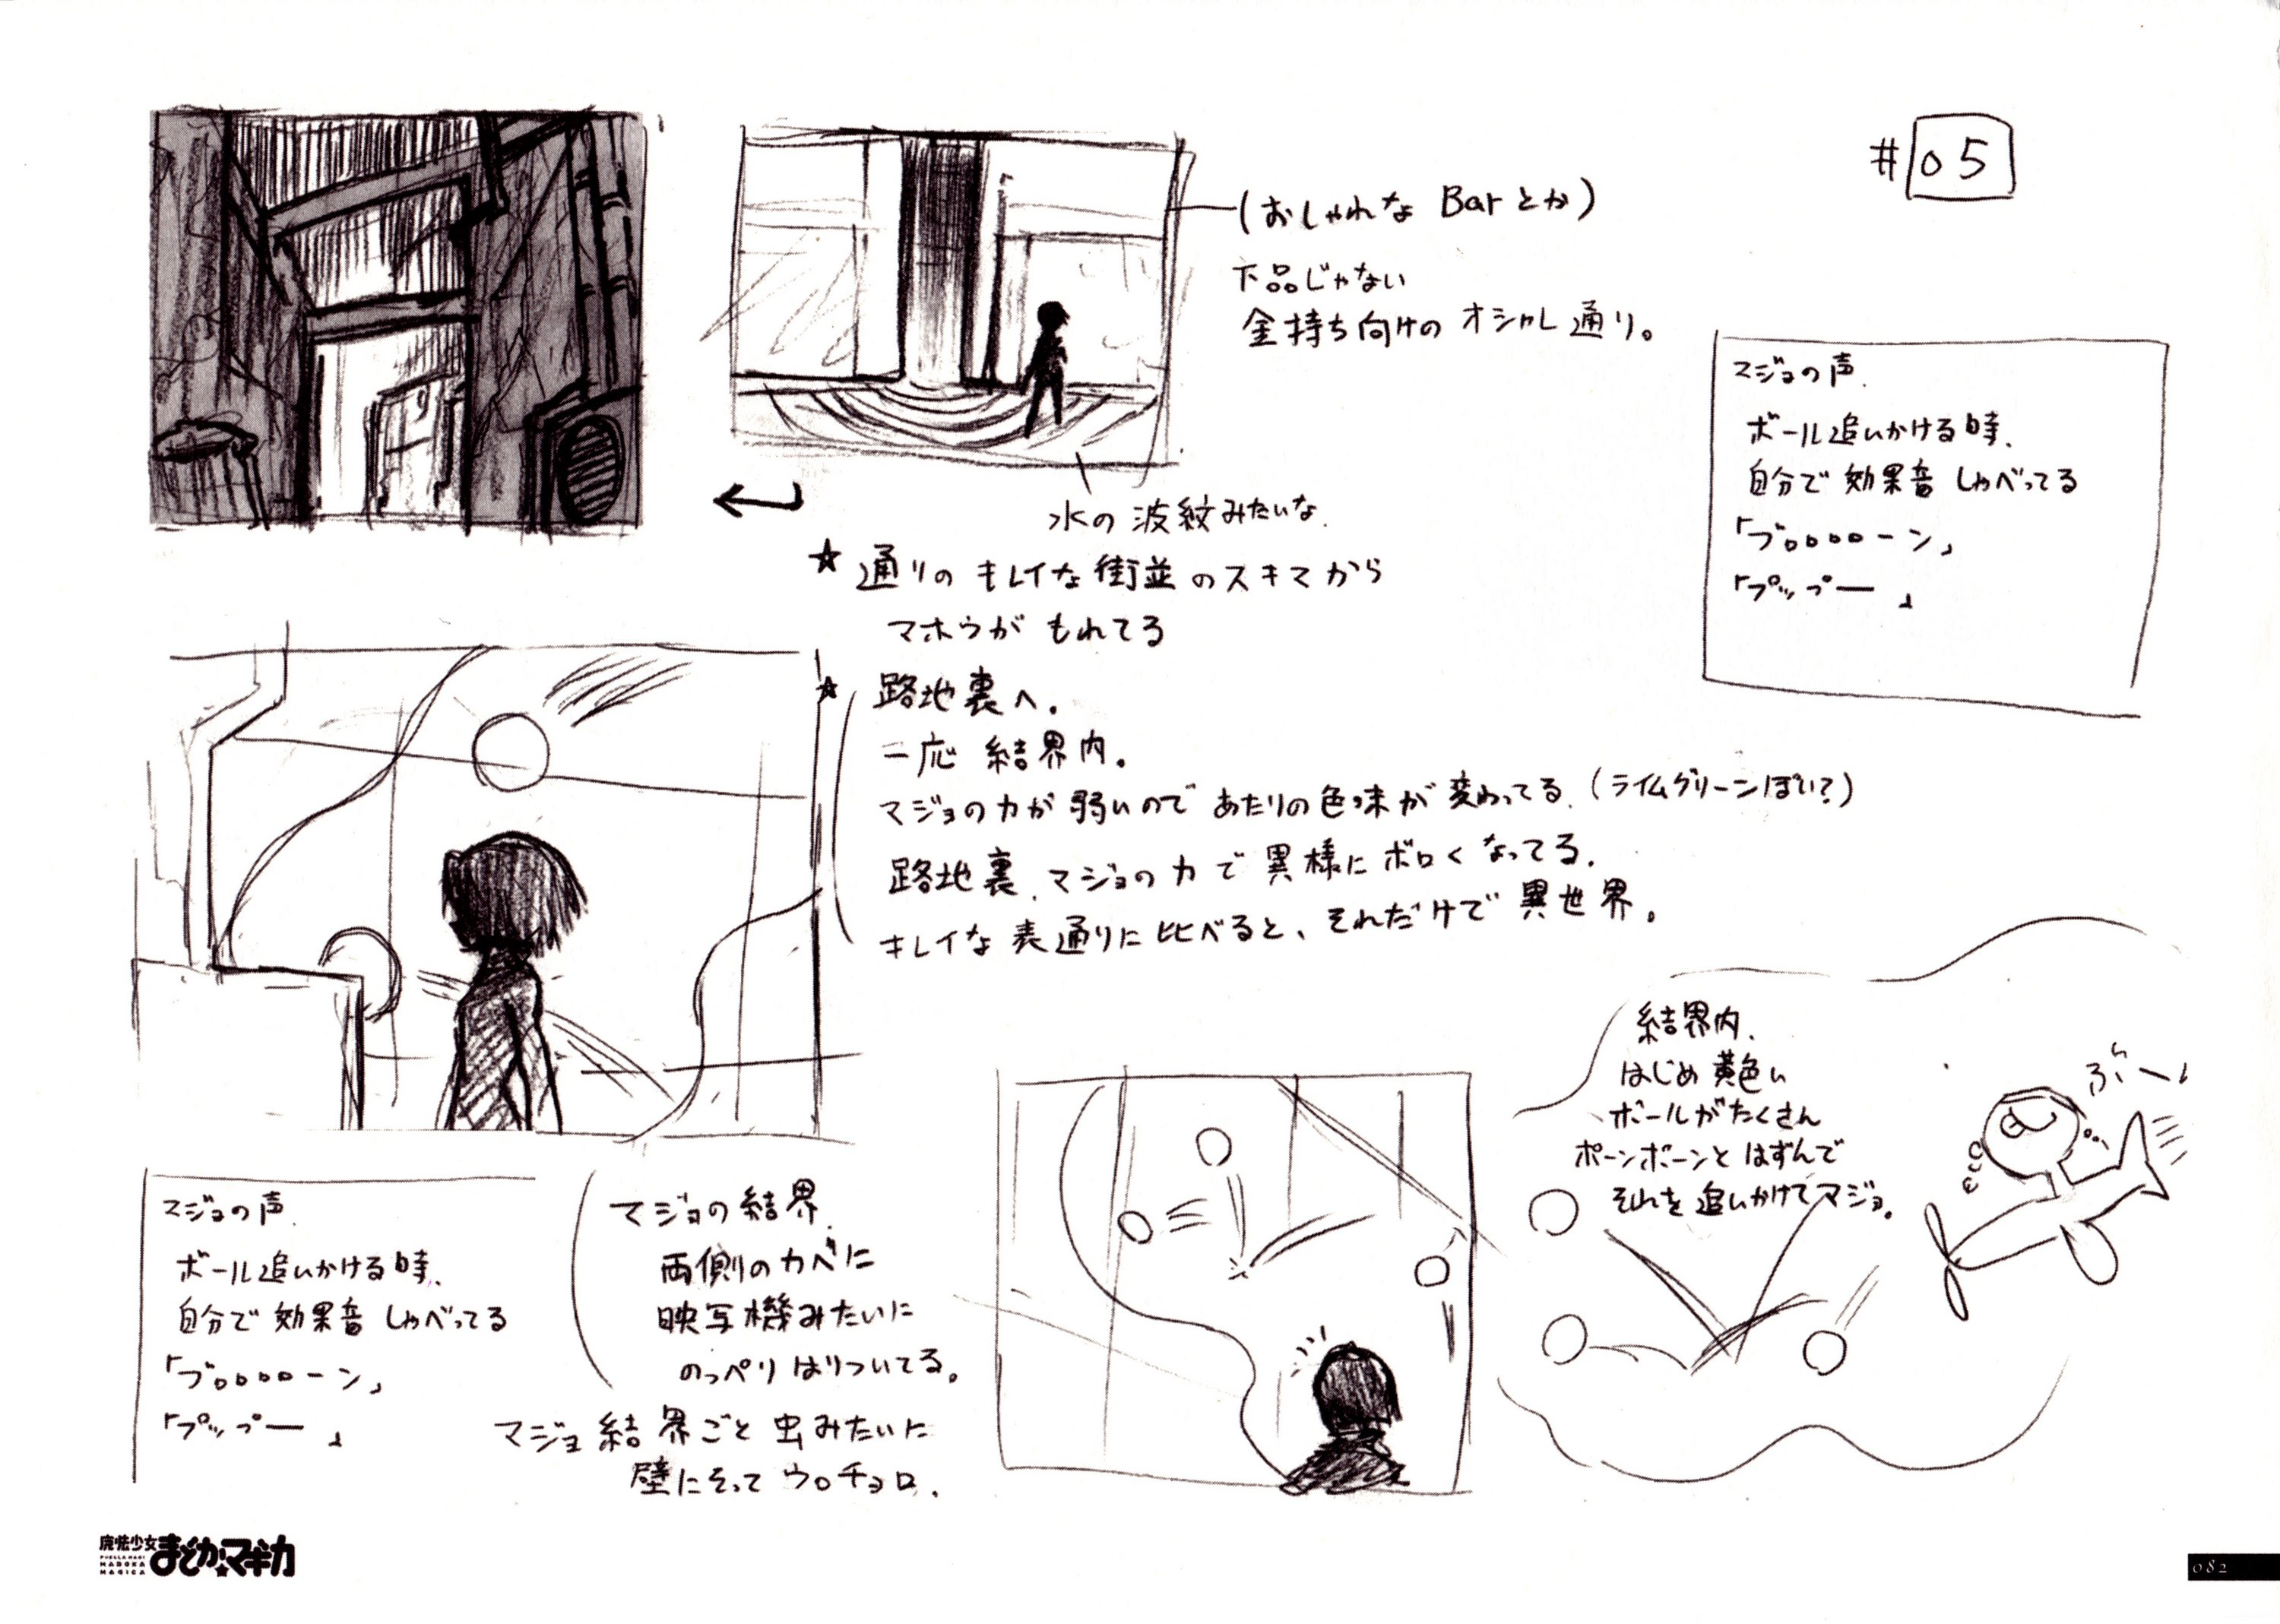 #05
(おしゃれな Barとか)
下品じゃない
金持ち向けの オシャレ通り。
水の波紋みたいな.
☆ 通りの キレイな街並のスキマから
マホウが もれてる
☆ 路地裏へ。
一応 結界内。
マジョの力が 弱いので あたりの色味が 変わってる.(ライムグリーンぽい?)
路地裏.マジョの力で 異様にボロくなってる.
キレイな表通りに比べると、それだけで異世界。
マジョの声.
ボール追いかける時.
自分で効果音しゃべってる
「ブロロロローン」
「プップー 」
結界内.
はじめ黄色い
ボールがたくさん
ポーンポーンと はずんで
それを追いかけてマジョ。
ぶーん
マジョの声.
ボール追いかける時.
自分で効果音しゃべってる
「ブロロロローン」
「プップー 」
マジョの結界.
両側のカベに
映写機みたいに
のっぺりはりついてる。
マジョ結界ごと虫みたいに
壁にそって ウロチョロ.
魔法少女
まどか☆マギカ
PUELLA MAGI
MADOKA
MAGICA
082